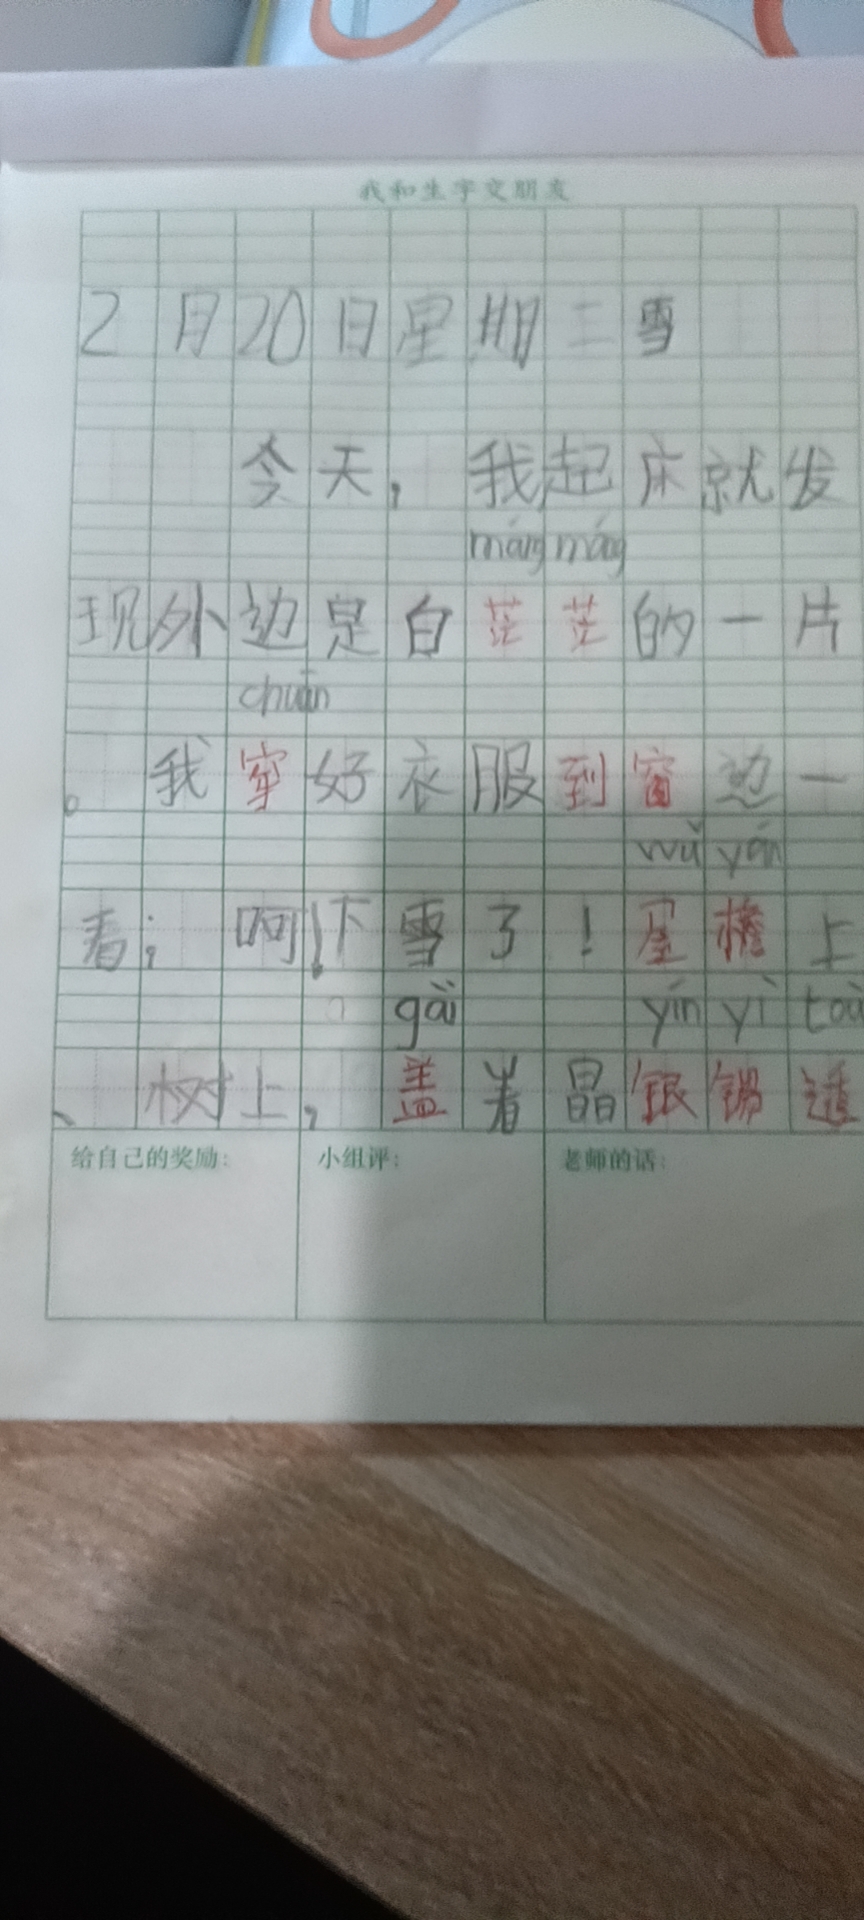 我和生字交朋友
2月20日星期三雪
今天，我起床就发
máng máng
现外边是白茫茫的一片
chuān
。我穿好衣服到窗边一
wū yán
看；呵！下雪了！屋檐上
gài yín yì tòu
、树上，盖着晶银镱透
给自己的奖励： 小组评： 老师的话：